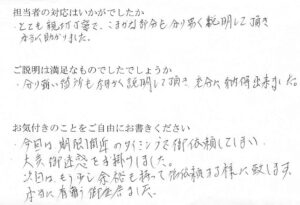 担当者の対応はいかがでしたか
・とても親切丁寧で、こまかな部分も分り易く説明して頂き
大変助かりました。
ご説明は満足なものでしたでしょうか
・分り難い箇所も細かく説明して頂き、充分に納得出来ました。
お気付きのことをご自由にお書きください
・今回は期限間際のタイミングで御依頼してしまい
大変御迷惑をお掛けしました。
次回はもう少し余裕を持って御依頼する様に致します。
本当に有難う御座居ました。